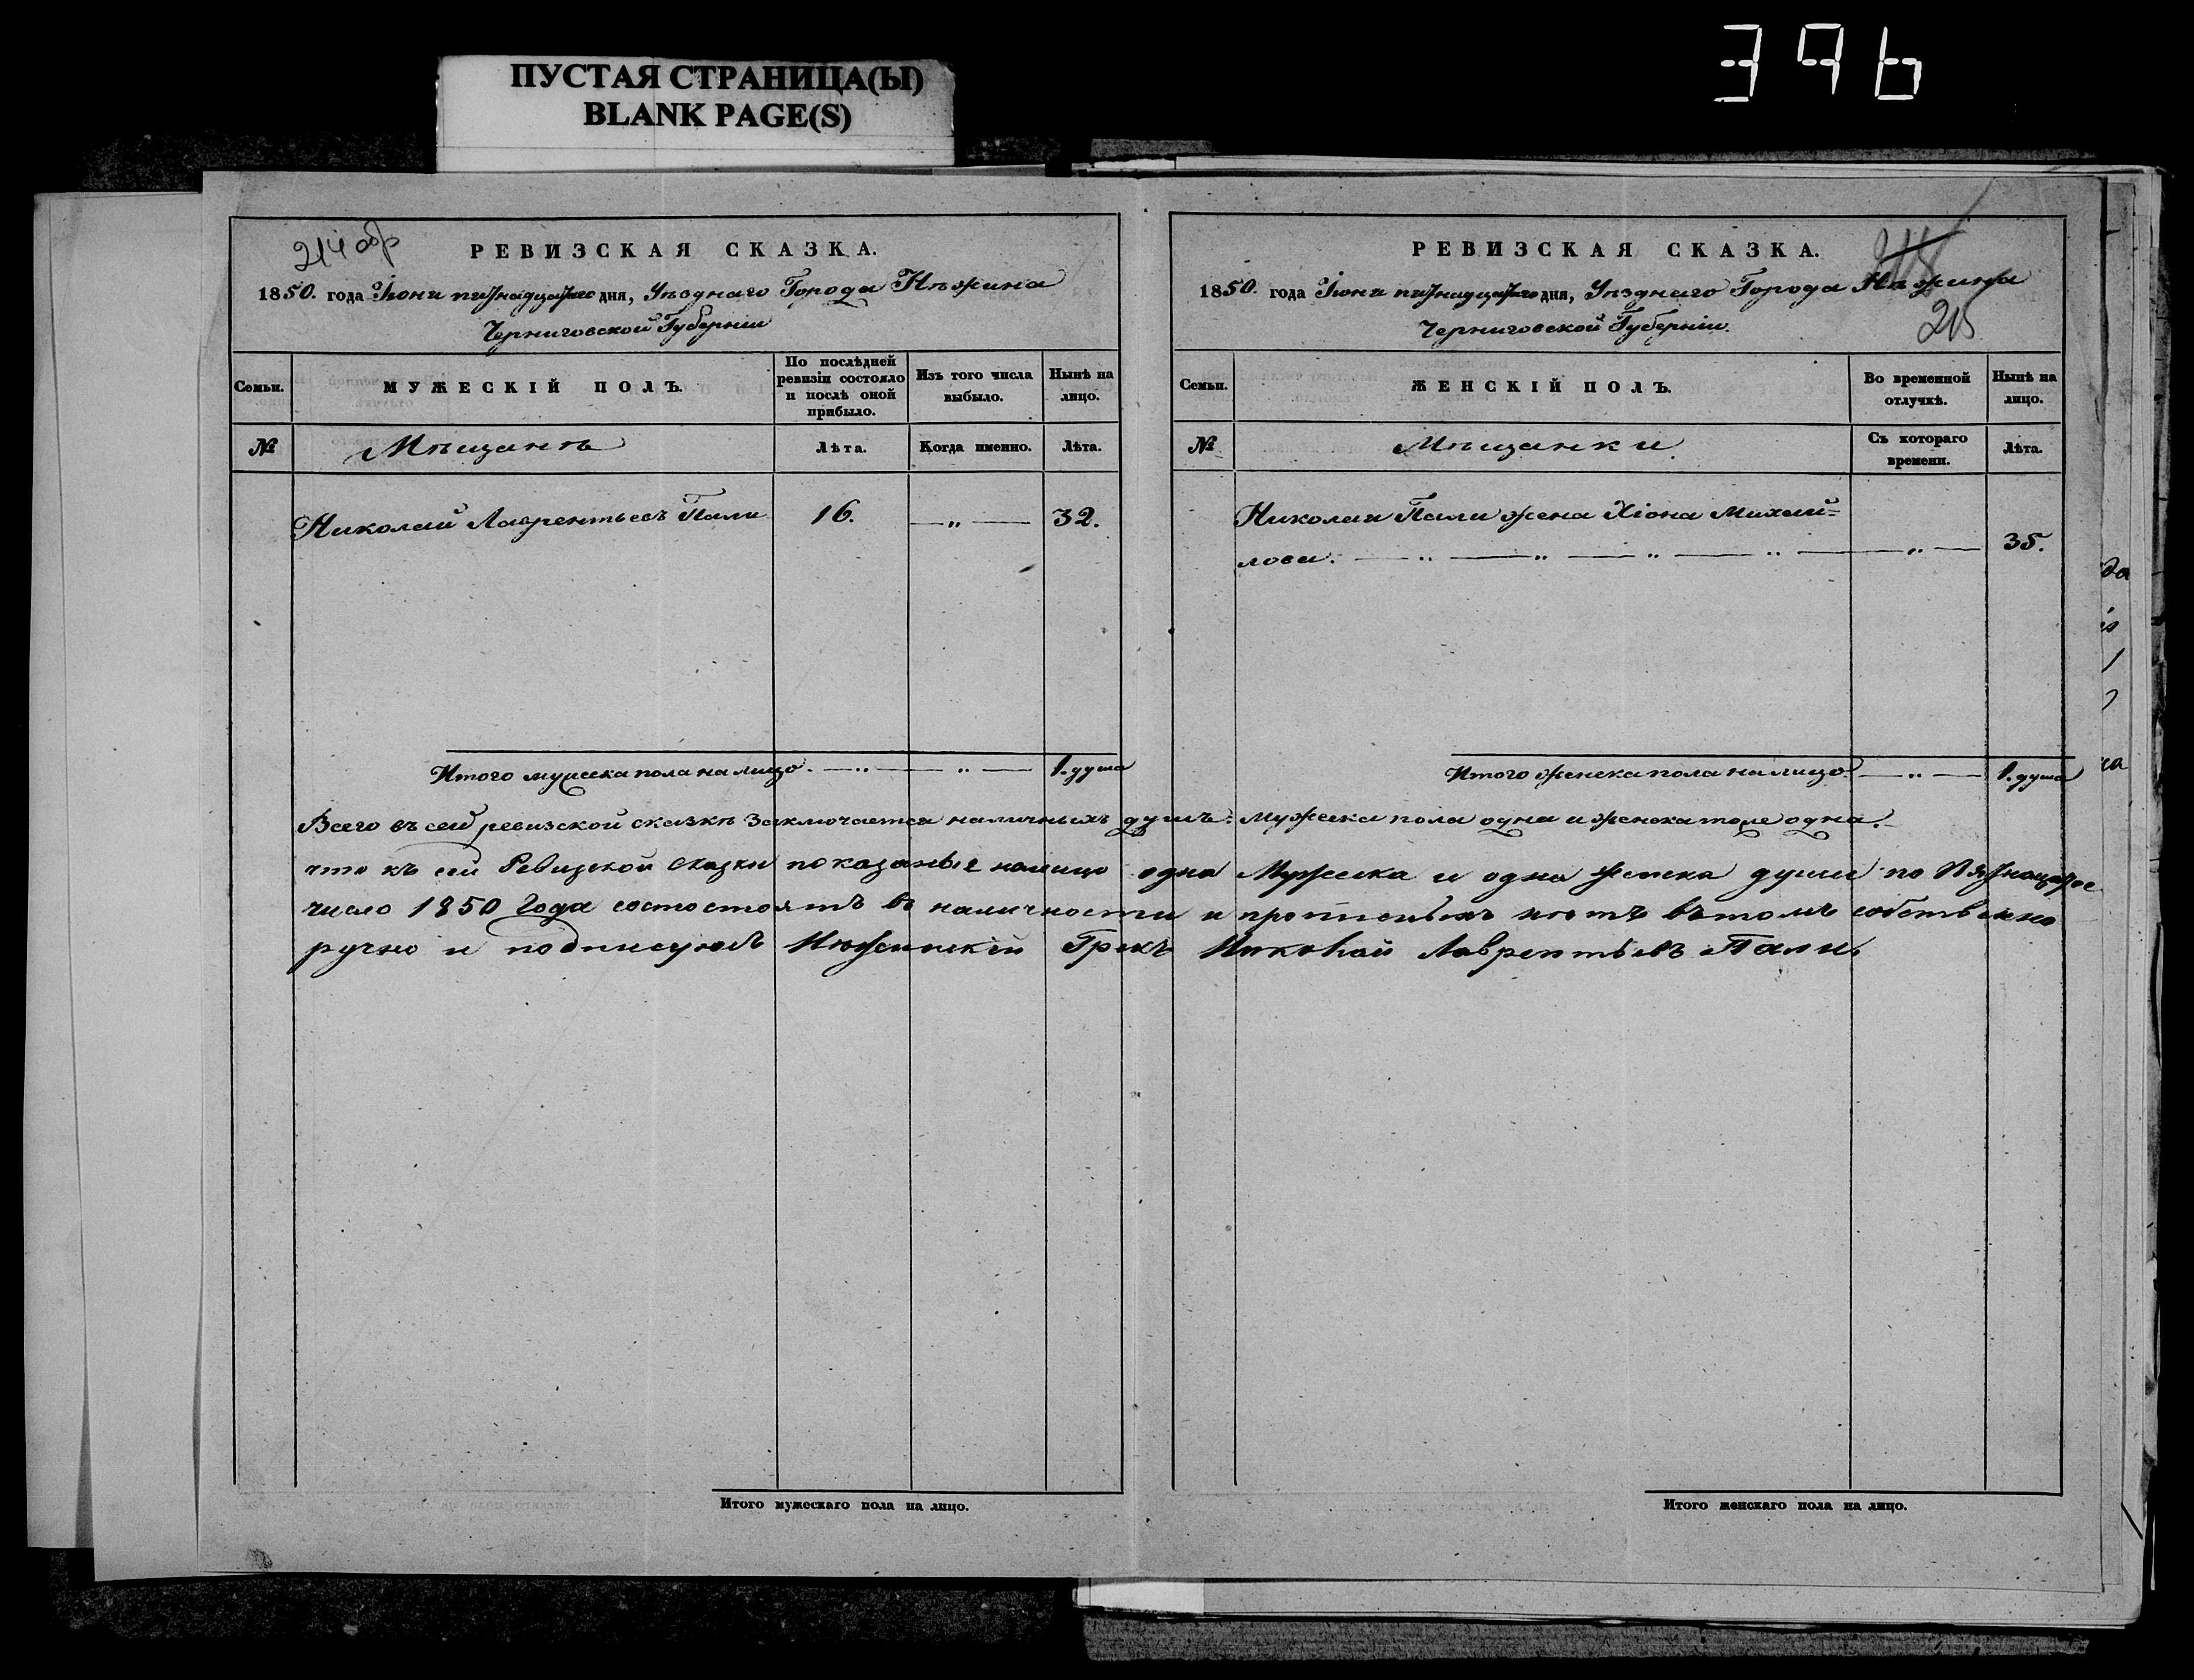 ПУСТАЯ СТРАНИЦА(Ы)
BLANK PAGE(S)
396
214 обр
РЕВИЗСКАЯ СКАЗКА.
1850. года Іюня пятнадцатого дня, Уѣзднаго Города Нѣжина
Черниговской Губерніи
Семьи.
МУЖЕСКІЙ ПОЛЪ.
По послѣдней
ревизіи состояло
и послѣ оной
прибыло.
Изъ того числа
выбыло.
Нынѣ на
лицо.
№
Мѣщанъ
Лѣта.
Когда именно.
Лѣта.
Николай Лаврентьевъ Пали 16. —„— 32.
Итого мужеска пола на лицо. —„— „— 1. душа
РЕВИЗСКАЯ СКАЗКА.
1850. года Іюня пятнадцатого дня, Уѣзднаго Города Нѣжина
Черниговской Губерніи.
215
Семьи.
ЖЕНСКІЙ ПОЛЪ.
Во временной
отлучкѣ.
Нынѣ на
лицо.
№
Мѣщанки
Съ котораго
времени.
Лѣта.
Николая Пали жена Хіона Михай=
лова. —„—„—„—„—„— 35.
Итого женска пола на лицо. —„— 1. душа
Всего въ сей ревизской сказкѣ заключается наличныхъ душъ: мужеска пола одна и женска тоже одна.
что къ сей Ревизкой сказки показаные налицо одна Мужеска и одна женска души по Пятнацатое
число 1850 Года состостоятъ въ наличности и прописныхъ нѣтъ въ томъ собствено
ручно и подписуюсь Нѣжинскій Грекъ Николай Лаврентьевъ Пали
Итого мужескаго пола на лицо.
Итого женскаго пола на лицо.